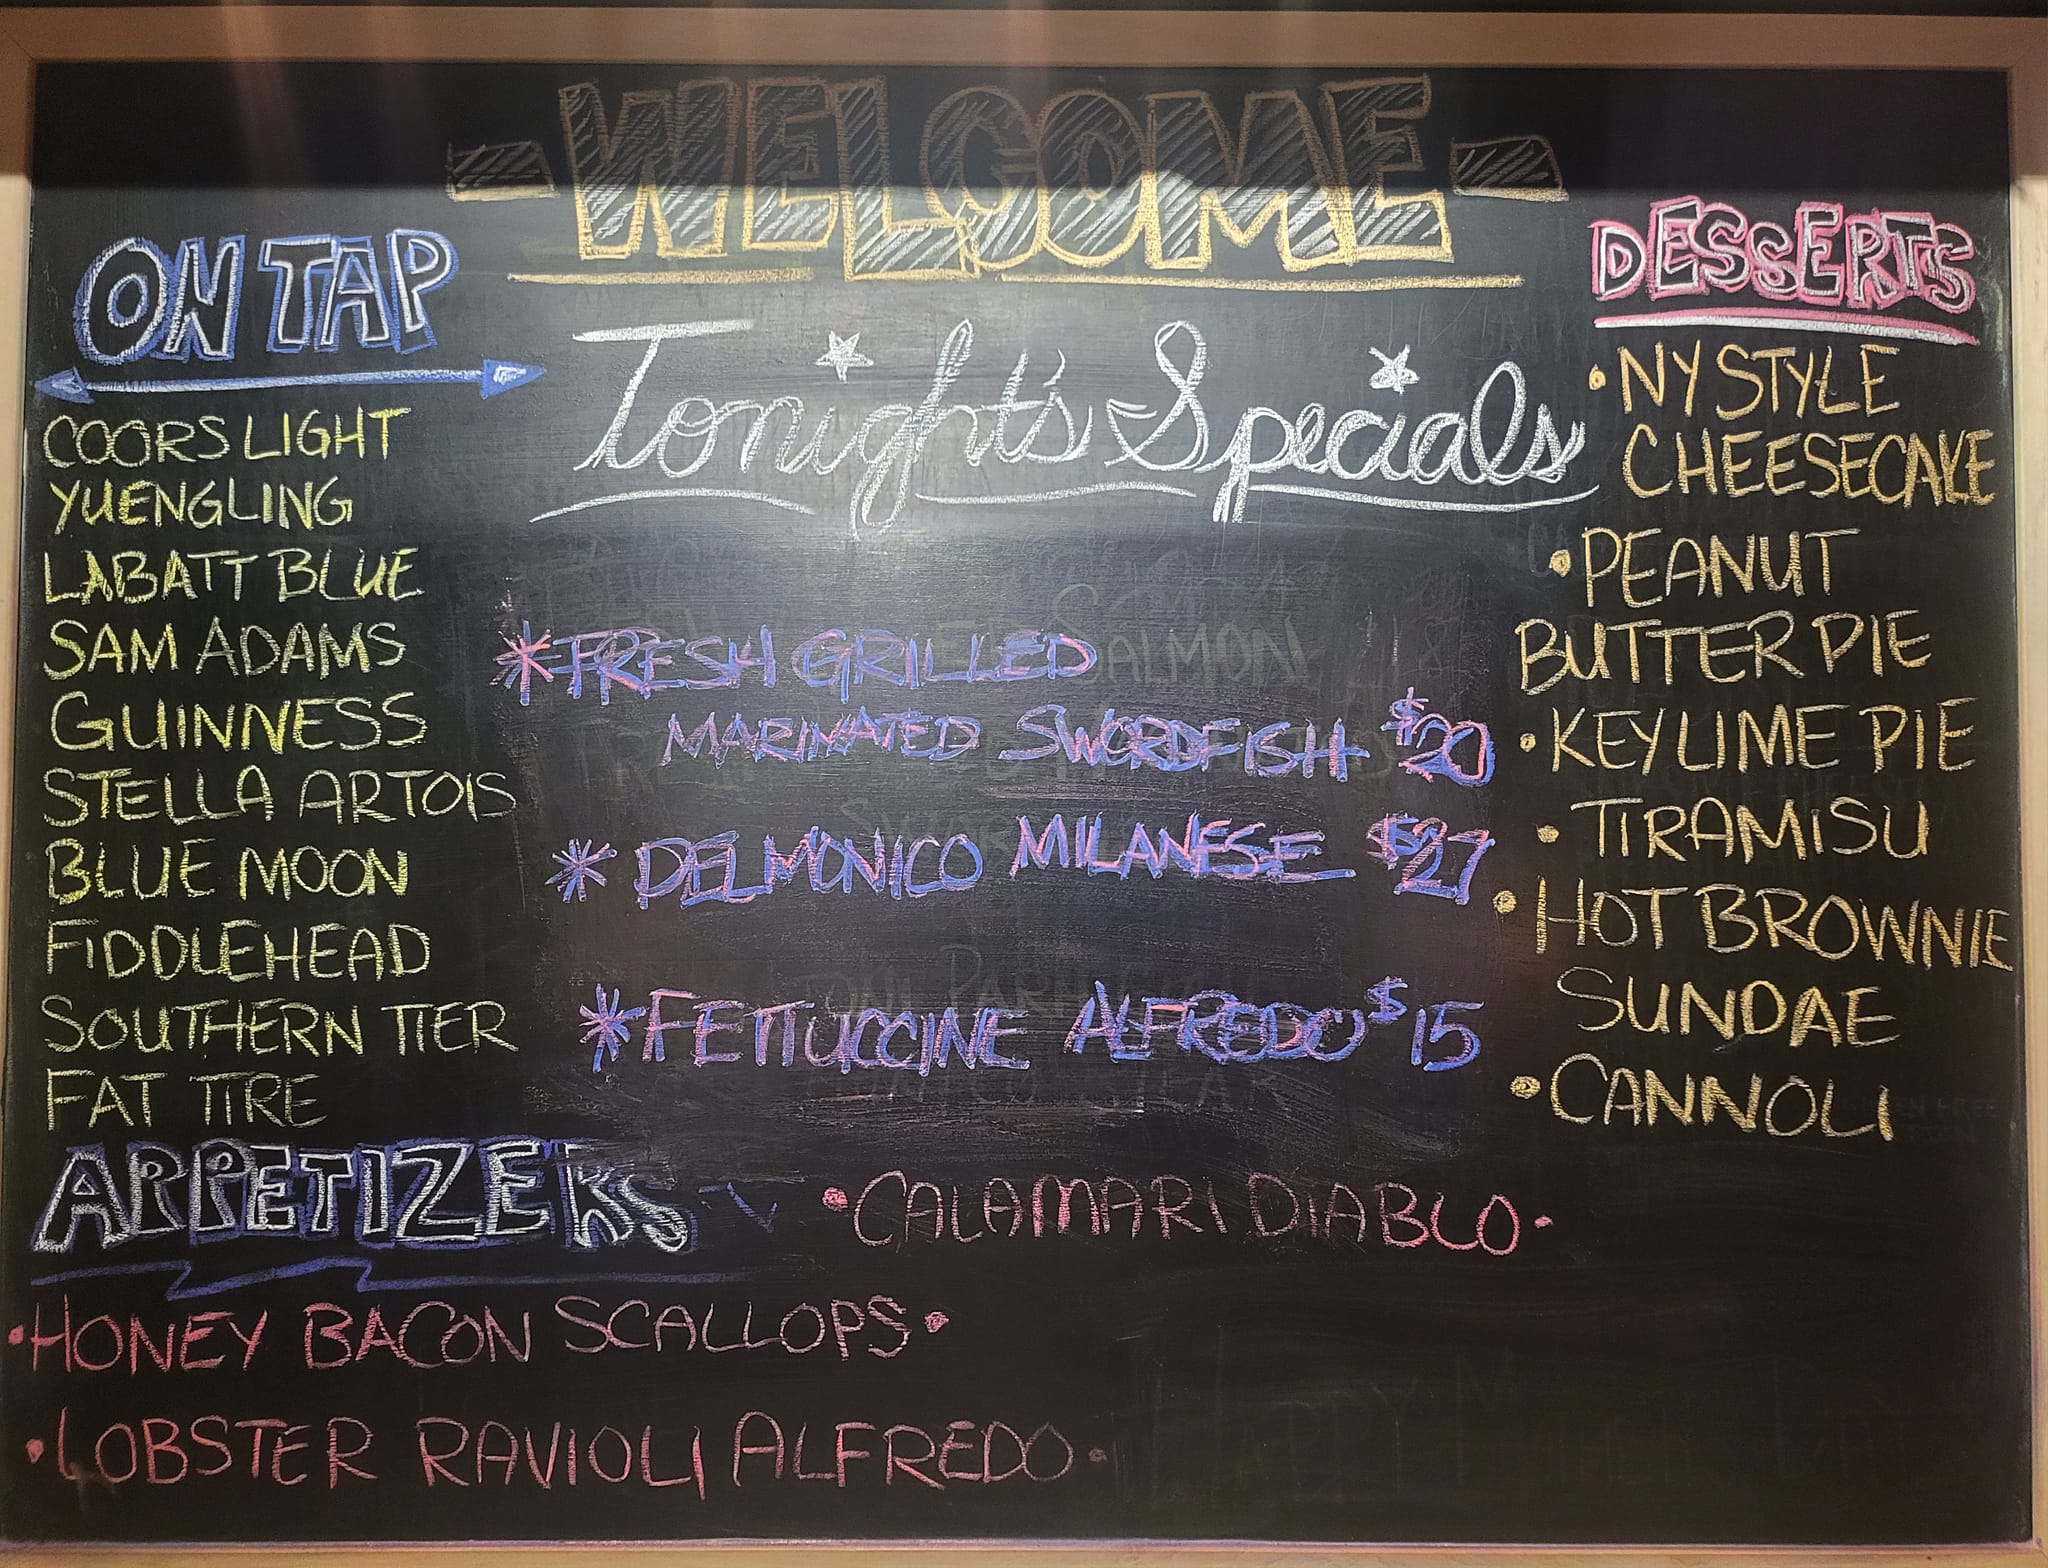 -WELCOME-
ON TAP
COORS LIGHT
YUENGLING
LABATT BLUE
SAM ADAMS
GUINNESS
STELLA ARTOIS
BLUE MOON
FIDDLEHEAD
SOUTHERN TIER
FAT TIRE
Tonight's Specials
*FRESH GRILLED
MARINATED SWORDFISH $20
* DELMONICO MILANESE $27
*FETTUCCINE ALFREDO $15
DESSERTS
• NY STYLE
CHEESECAKE
• PEANUT
BUTTER PIE
• KEY LIME PIE
• TIRAMISU
• HOT BROWNIE
SUNDAE
• CANNOLI
APPETIZERS
• CALAMARI DIABLO •
• HONEY BACON SCALLOPS •
• LOBSTER RAVIOLI ALFREDO •